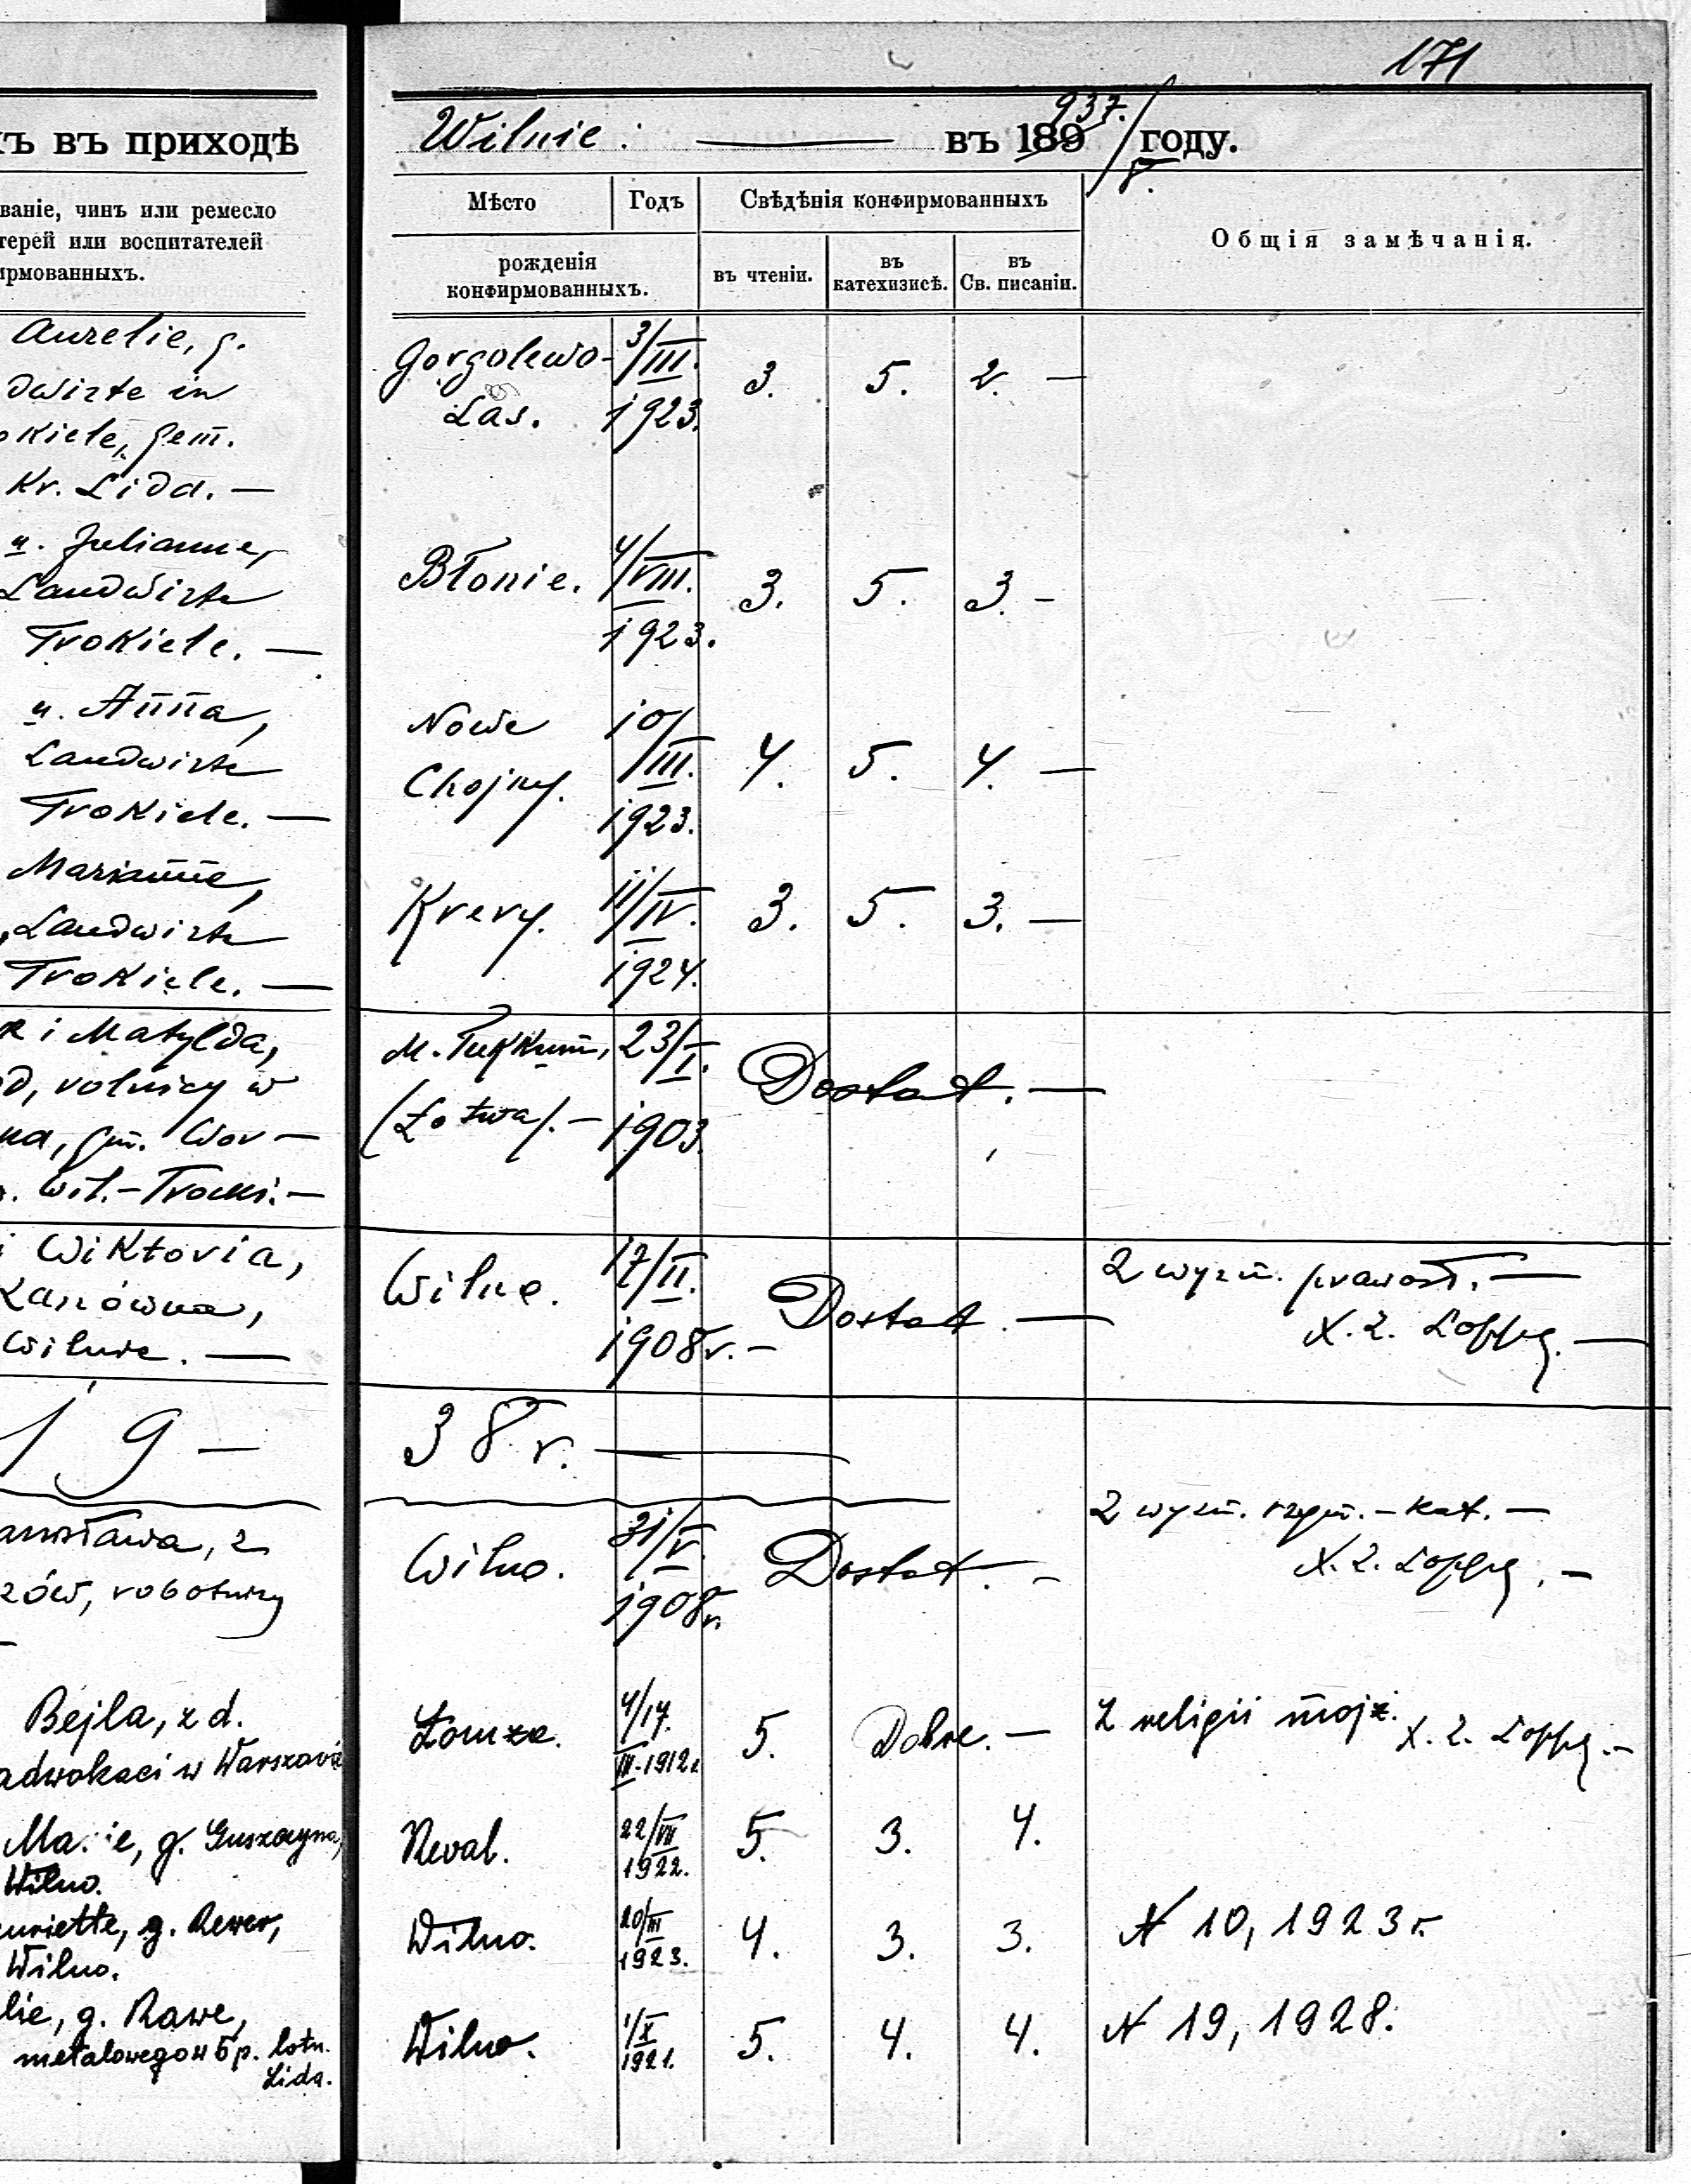 171
хъ въ приходѣ
Wilnie: — въ 189 937/8. году.
ваніе, чинъ или ремесло
терей или воспитателей
ирмованныхъ.
Мѣсто Годъ
рожденія
конфирмованныхъ.
Свѣдѣнія конфирмованныхъ
въ чтеніи. въ катехизисѣ. въ Св. писаніи.
Общія замѣчанія.
Aurelie, g.
dwirte in
okiele, gem.
Kr. Lida. —
Gorgolewo- 3/III. 3. 5. 2. —
Las. 1923.
u. Julianne,
Landwirte
Trokiele. —
Błonie. 4/VIII. 3. 5. 3. -
1923.
u. Anna,
Landwirte
Trokiele. —
Nowe 10/
Chojny. III. 4. 5. 4. —
1923.
Marianne,
Landwirte
Trokiele. —
Krery. 11/IV. 3. 5. 3. —
1924.
i Matylda,
d, rolnicy w
na, gm. Wor —
. Wil.-Trocki. —
M. Tukkum, 23/I. Dostat. —
(Łotwa). — 1903.
i Wiktoria,
Wilnie. —
Wilno. 17/II. Dostat. —
1908 r. —
Z wyzn. prawosł. —
X. Z. Loppe. —
19 — 38 r. —
anisława, z
zów, robotnicy
Wilno. 31/V. Dostat. —
1908 r.
Z wyzn. rzym. - kat. —
X. Z. Loppe. —
Bejla, z d.
adwokaci w Warszawie
Łomża. 4/17. 5. Dobre. —
III-1912 r.
Z religii mojż. X. Z. Loppe. —
Marie, g. Guszczyna,
Wilno.
Reval. 22/VII 5. 3. 4.
1922.
enriette, g. Rewer,
Wilno.
Wilno. 20/III 4. 3. 3. N 10, 1923 r.
1923.
lie, g. Rawe,
metalowego w 5 p. lotn.
Lida.
Wilno. 1/X 5. 4. 4. N 19, 1928.
1921.